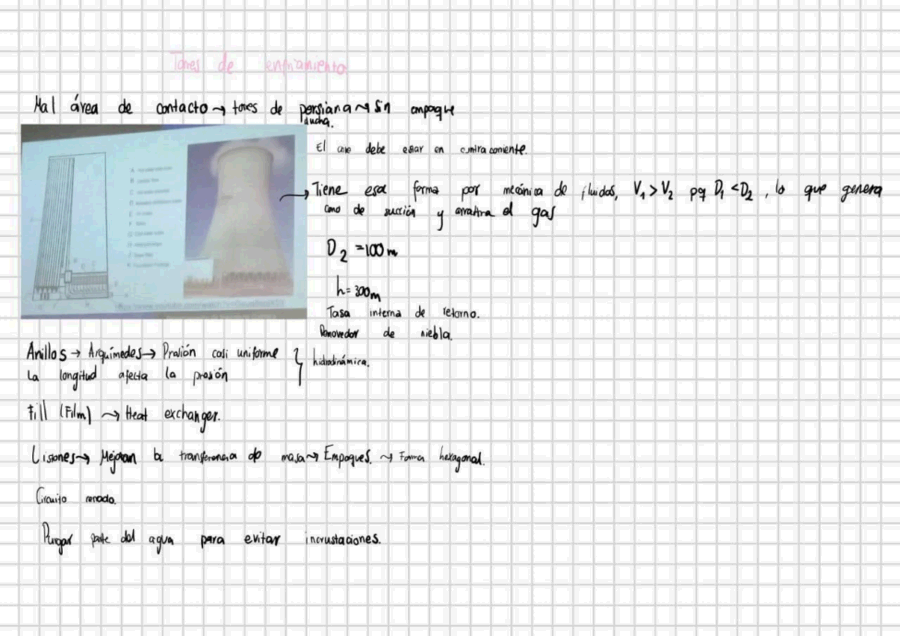 Torres de enfriamiento
Mal área de contacto → torres de persiana → sin empaque
ducha.
El aire debe estar en contracorriente.
→ Tiene esa forma por mecánica de fluidos, V₁ > V₂ pq D₁ < D₂, lo que genera
como de succión y arrastra el gas
D₂ = 100 m
h = 300 m
Tasa interna de retorno.
Removedor de niebla.
Anillos → Arquímedes → Presión casi uniforme } hidrodinámica.
La longitud afecta la presión
Fill (Film) → Heat exchanger.
Listones → Mejoran la transferencia de masa → Empaques. → Forma hexagonal.
Circuito cerrado.
Purgar parte del agua para evitar incrustaciones.